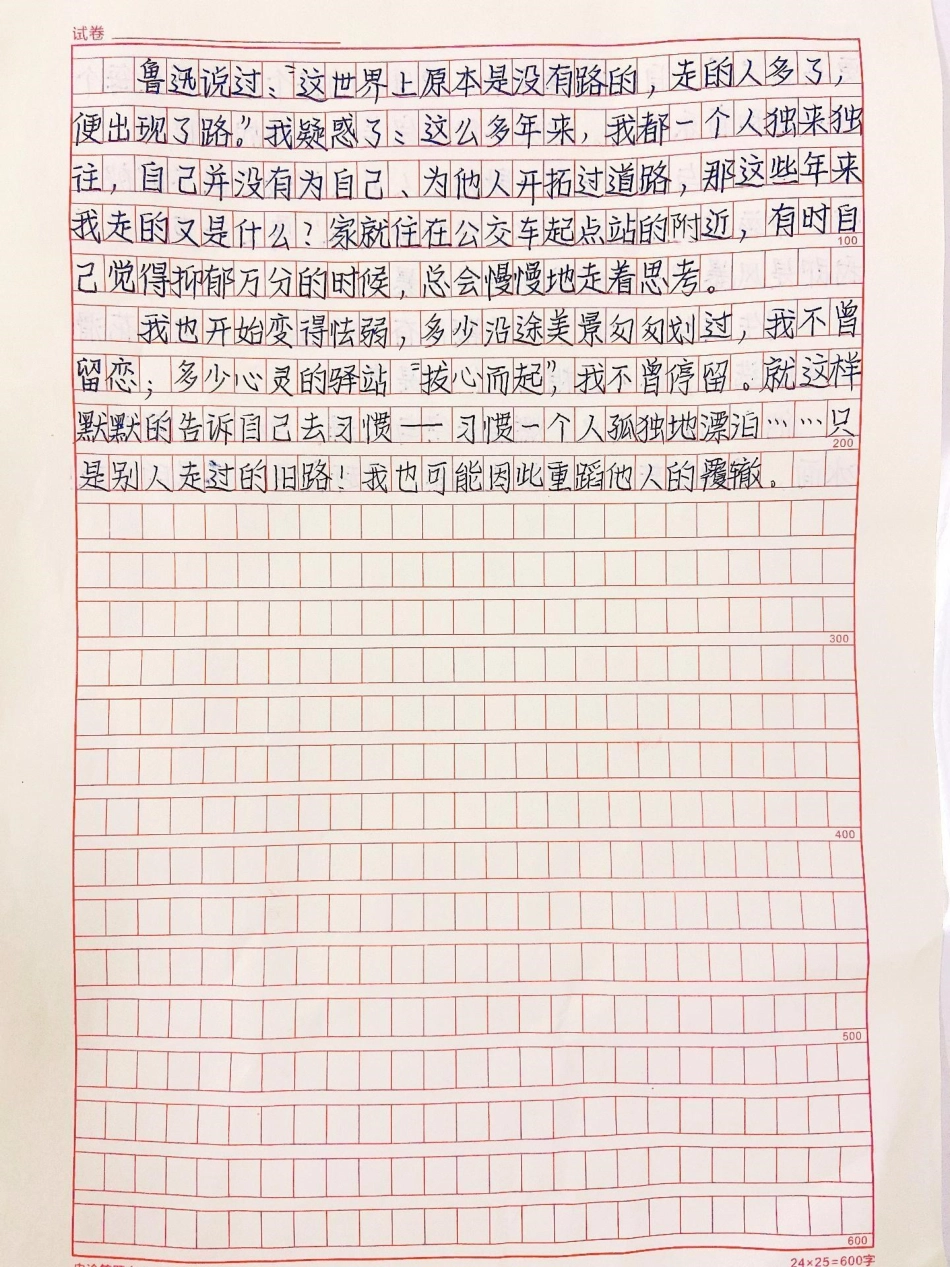 试卷
鲁迅说过："这世界上原本是没有路的，走的人多了，
便出现了路。"我疑惑了：这么多年来，我都一个人独来独
往，自己并没有为自己、为他人开拓过道路，那这些年来
我走的又是什么？家就住在公交车起点站的附近，有时自
100
己觉得抑郁万分的时候，总会慢慢地走着思考。
我也开始变得怯弱，多少沿途美景匆匆划过，我不曾
留恋；多少心灵的驿站"拔心而起"，我不曾停留。就这样
默默的告诉自己去习惯——习惯一个人孤独地漂泊……只
200
是别人走过的旧路！我也可能因此重蹈他人的覆辙。
300
400
500
600
24×25=600字